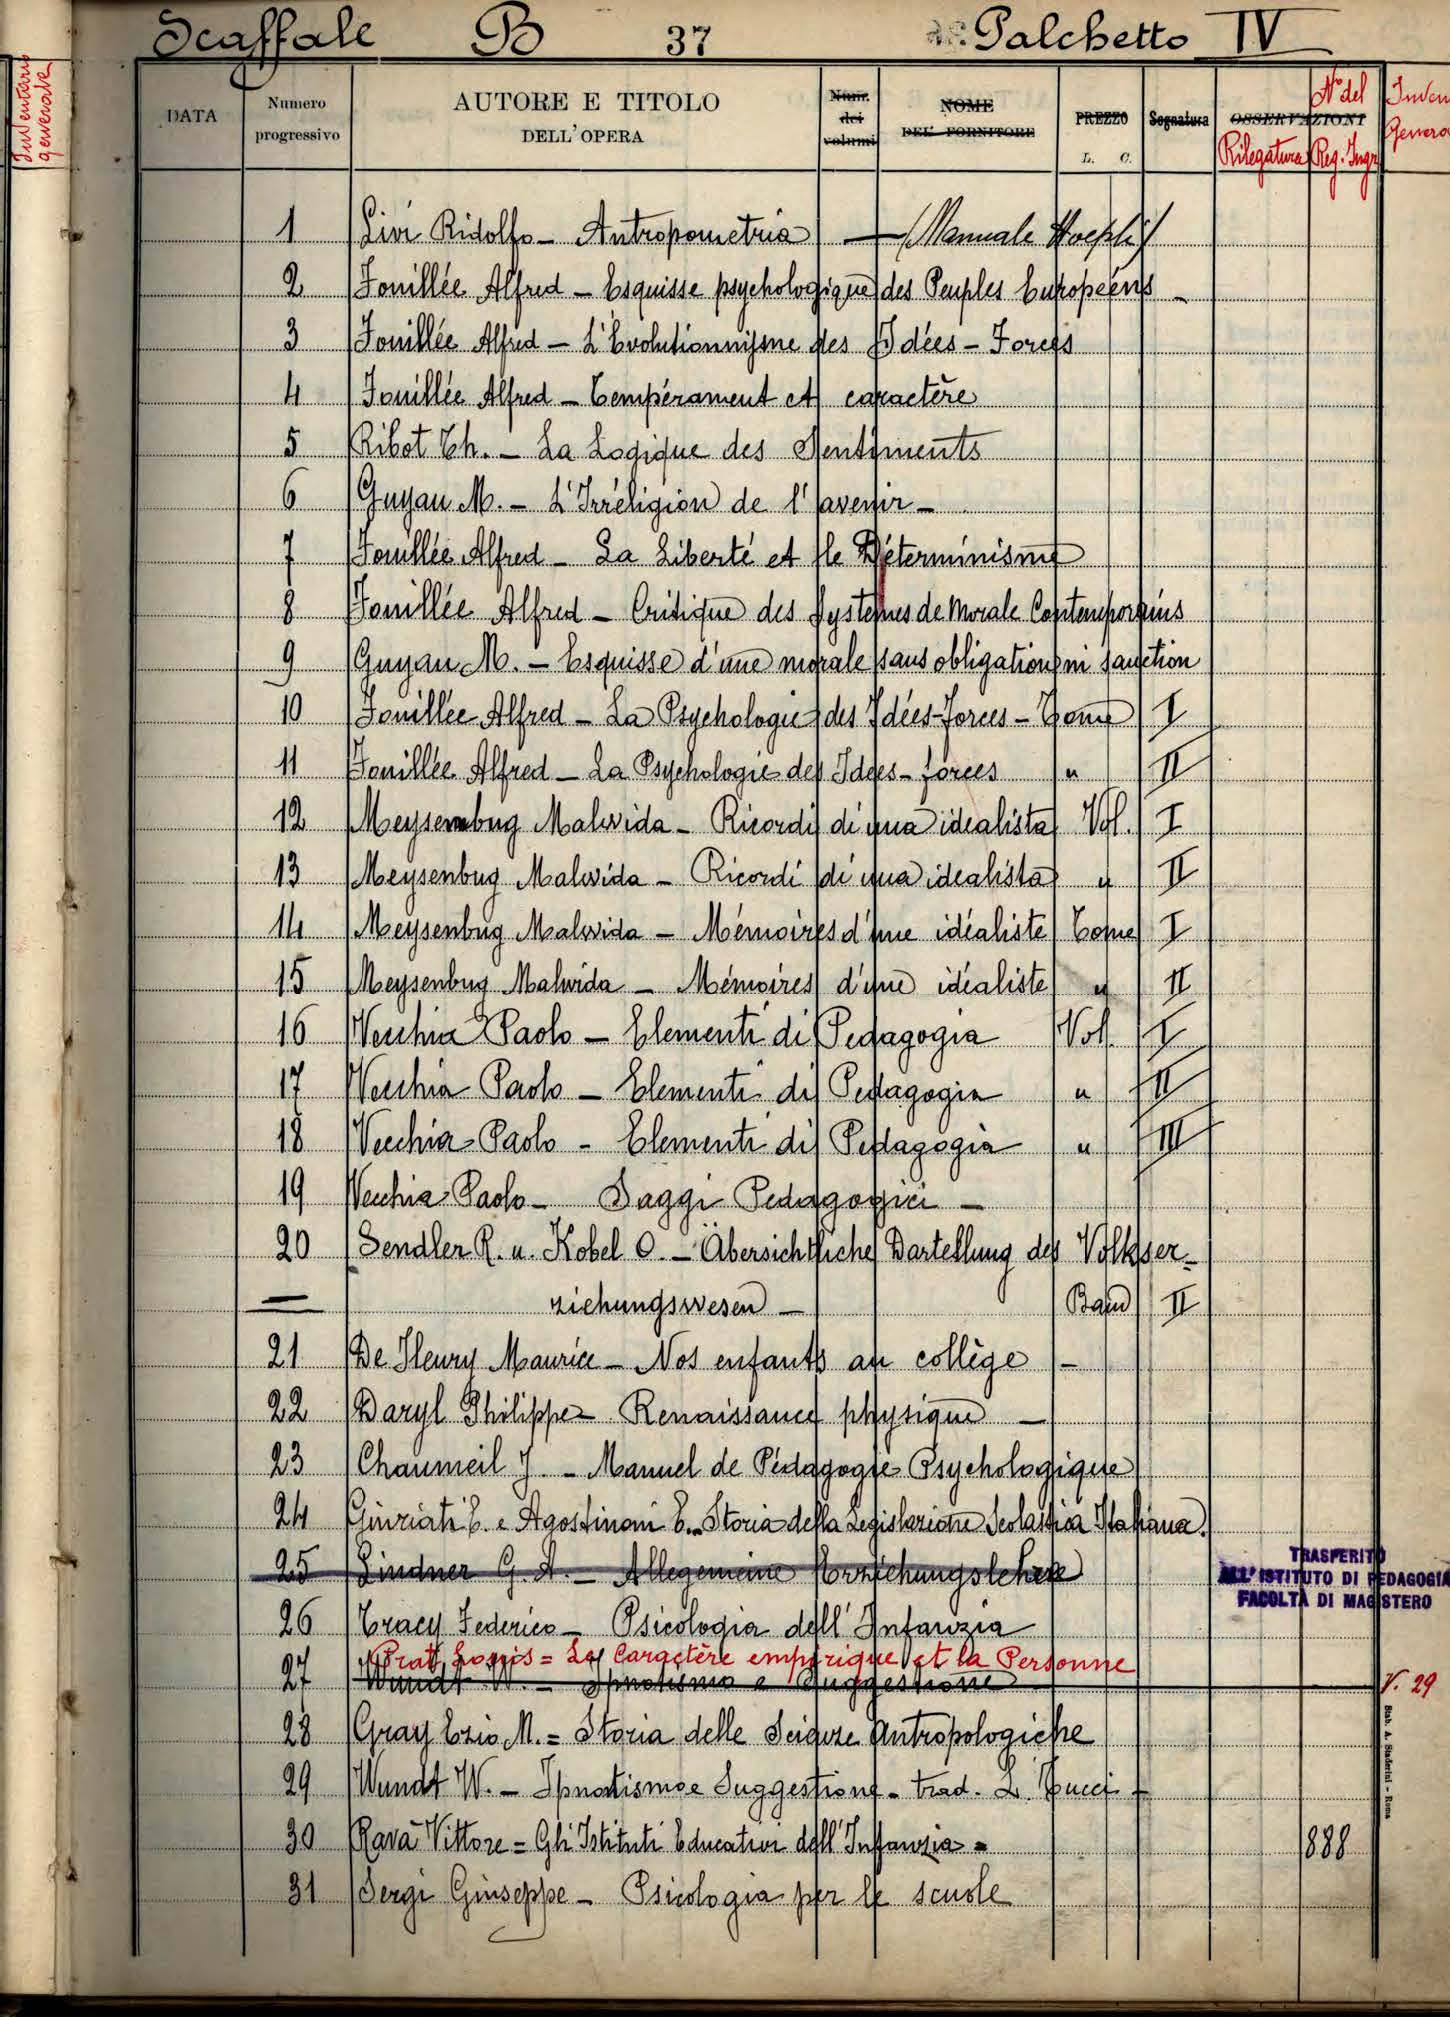 Scaffale B 37 Palchetto IV
Inventario generale
DATA
Numero progressivo
AUTORE E TITOLO
DELL'OPERA
Num. dei volumi
NOME DEL FORNITORE
PREZZO
L. C.
Segnatura
OSSERVAZIONI
Rilegatura
N° del Reg. Ingr.
Inven
Genera
1 Livi Ridolfo - Antropometria - (Manuale Hoepli)
2 Fouillée Alfred - Esquisse psychologique des Peuples Européens -
3 Fouillée Alfred - L'Evolutionnisme des Idées - Forces
4 Fouillée Alfred - Tempérament et caractère
5 Ribot Th. - La Logique des Sentiments
6 Guyau M. - L'Irréligion de l'avenir -
7 Fouillée Alfred - La Liberté et le Déterminisme
8 Fouillée Alfred - Critique des Systemes de Morale Contemporains
9 Guyau M. - Esquisse d'une morale sans obligation ni sanction
10 Fouillée Alfred - La Psychologie des Idées-forces - Tome I
11 Fouillée Alfred - La Psychologie des Idées-forces " II
12 Meysenbug Malwida - Ricordi di una idealista Vol. I
13 Meysenbug Malwida - Ricordi di una idealista " II
14 Meysenbug Malwida - Mémoires d'une idéaliste Tome I
15 Meysenbug Malwida - Mémoires d'une idéaliste " II
16 Vecchia Paolo - Elementi di Pedagogia Vol. I
17 Vecchia Paolo - Elementi di Pedagogia " II
18 Vecchia Paolo - Elementi di Pedagogia " III
19 Vecchia Paolo - Saggi Pedagogici -
20 Sendler R. u. Kobel O. - Übersichtliche Dartellung des Volkser-
— ziehungswesen - Band II
21 De Fleury Maurice - Nos enfants au collège -
22 Daryl Philippe - Renaissance physique -
23 Chaumeil J. - Manuel de Pédagogie Psychologique
24 Giuriati E. e Agostinoni E. - Storia della Legislazione Scolastica Italiana.
25 Lindner G. A. - Allegemeine Erziehungslehre
TRASFERITO
ALL'ISTITUTO DI PEDAGOGIA
FACOLTÀ DI MAGISTERO
26 Tracy Federico - Psicologia dell'Infanzia
Prat Louis = Le Caractère empirique et la Personne
27 Wundt W. - Ipnotismo e Suggestione V. 29
28 Gray Ezio M. = Storia delle Scienze Antropologiche
29 Wundt W. - Ipnotismo e Suggestione - trad. L. Tucci -
30 Ravà Vittore = Gli Istituti Educativi dell'Infanzia = 888
31 Sergi Giuseppe - Psicologia per le scuole
Stab. A. Staderini - Roma